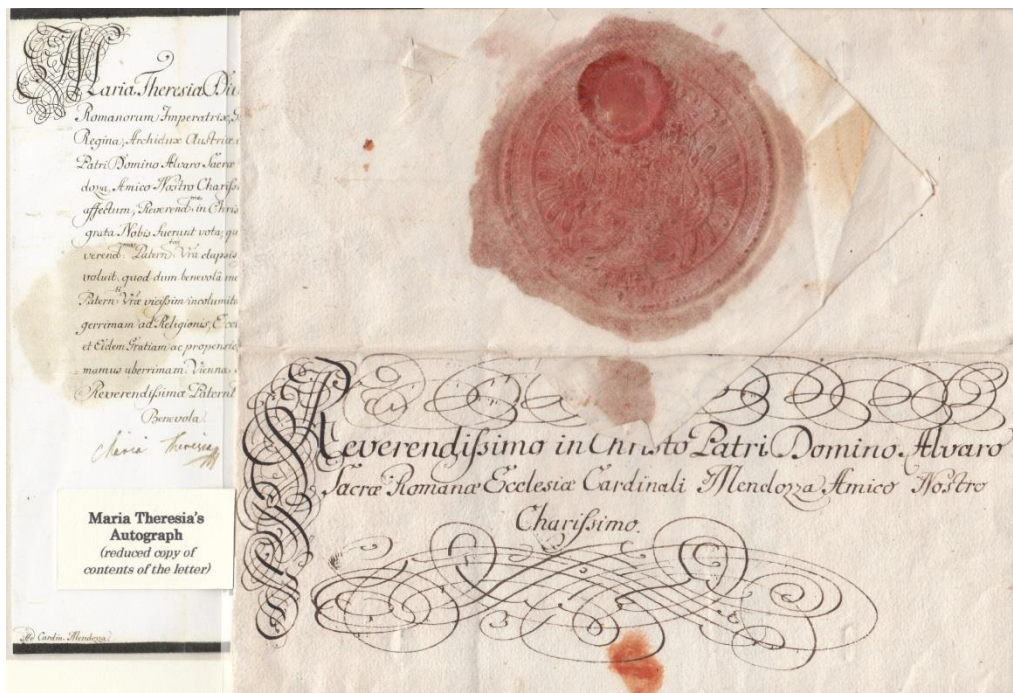 Maria Theresia
Romanorum Imperatrix,
Regina, Archidux Austriæ
Patri Domino Alvaro Sacræ
doza, Amico Nostro Chariſsi
affectum, Reverend.me in Chris
grata Nobis fuerunt vota, qu
verend.mae Patern.tas Vrã elapsis
voluit, quod dum benevolâ me
Patern.ti Vræ viciſsim incolumita
gerrimam ad Religionis, Ecc
et Eidem Gratiam ac propensio
mamus uberrimam. Vienna
Reverendiſsimæ Paternit
Benevola.
Maria Theresia
Maria Theresia's
Autograph
(reduced copy of
contents of the letter)
Ad Cardin. Mendozza.
Reverendiſsimo in Christo Patri Domino Alvaro
Sacræ Romanæ Eccleſiæ Cardinali Mendozza Amico Nostro
Chariſsimo.